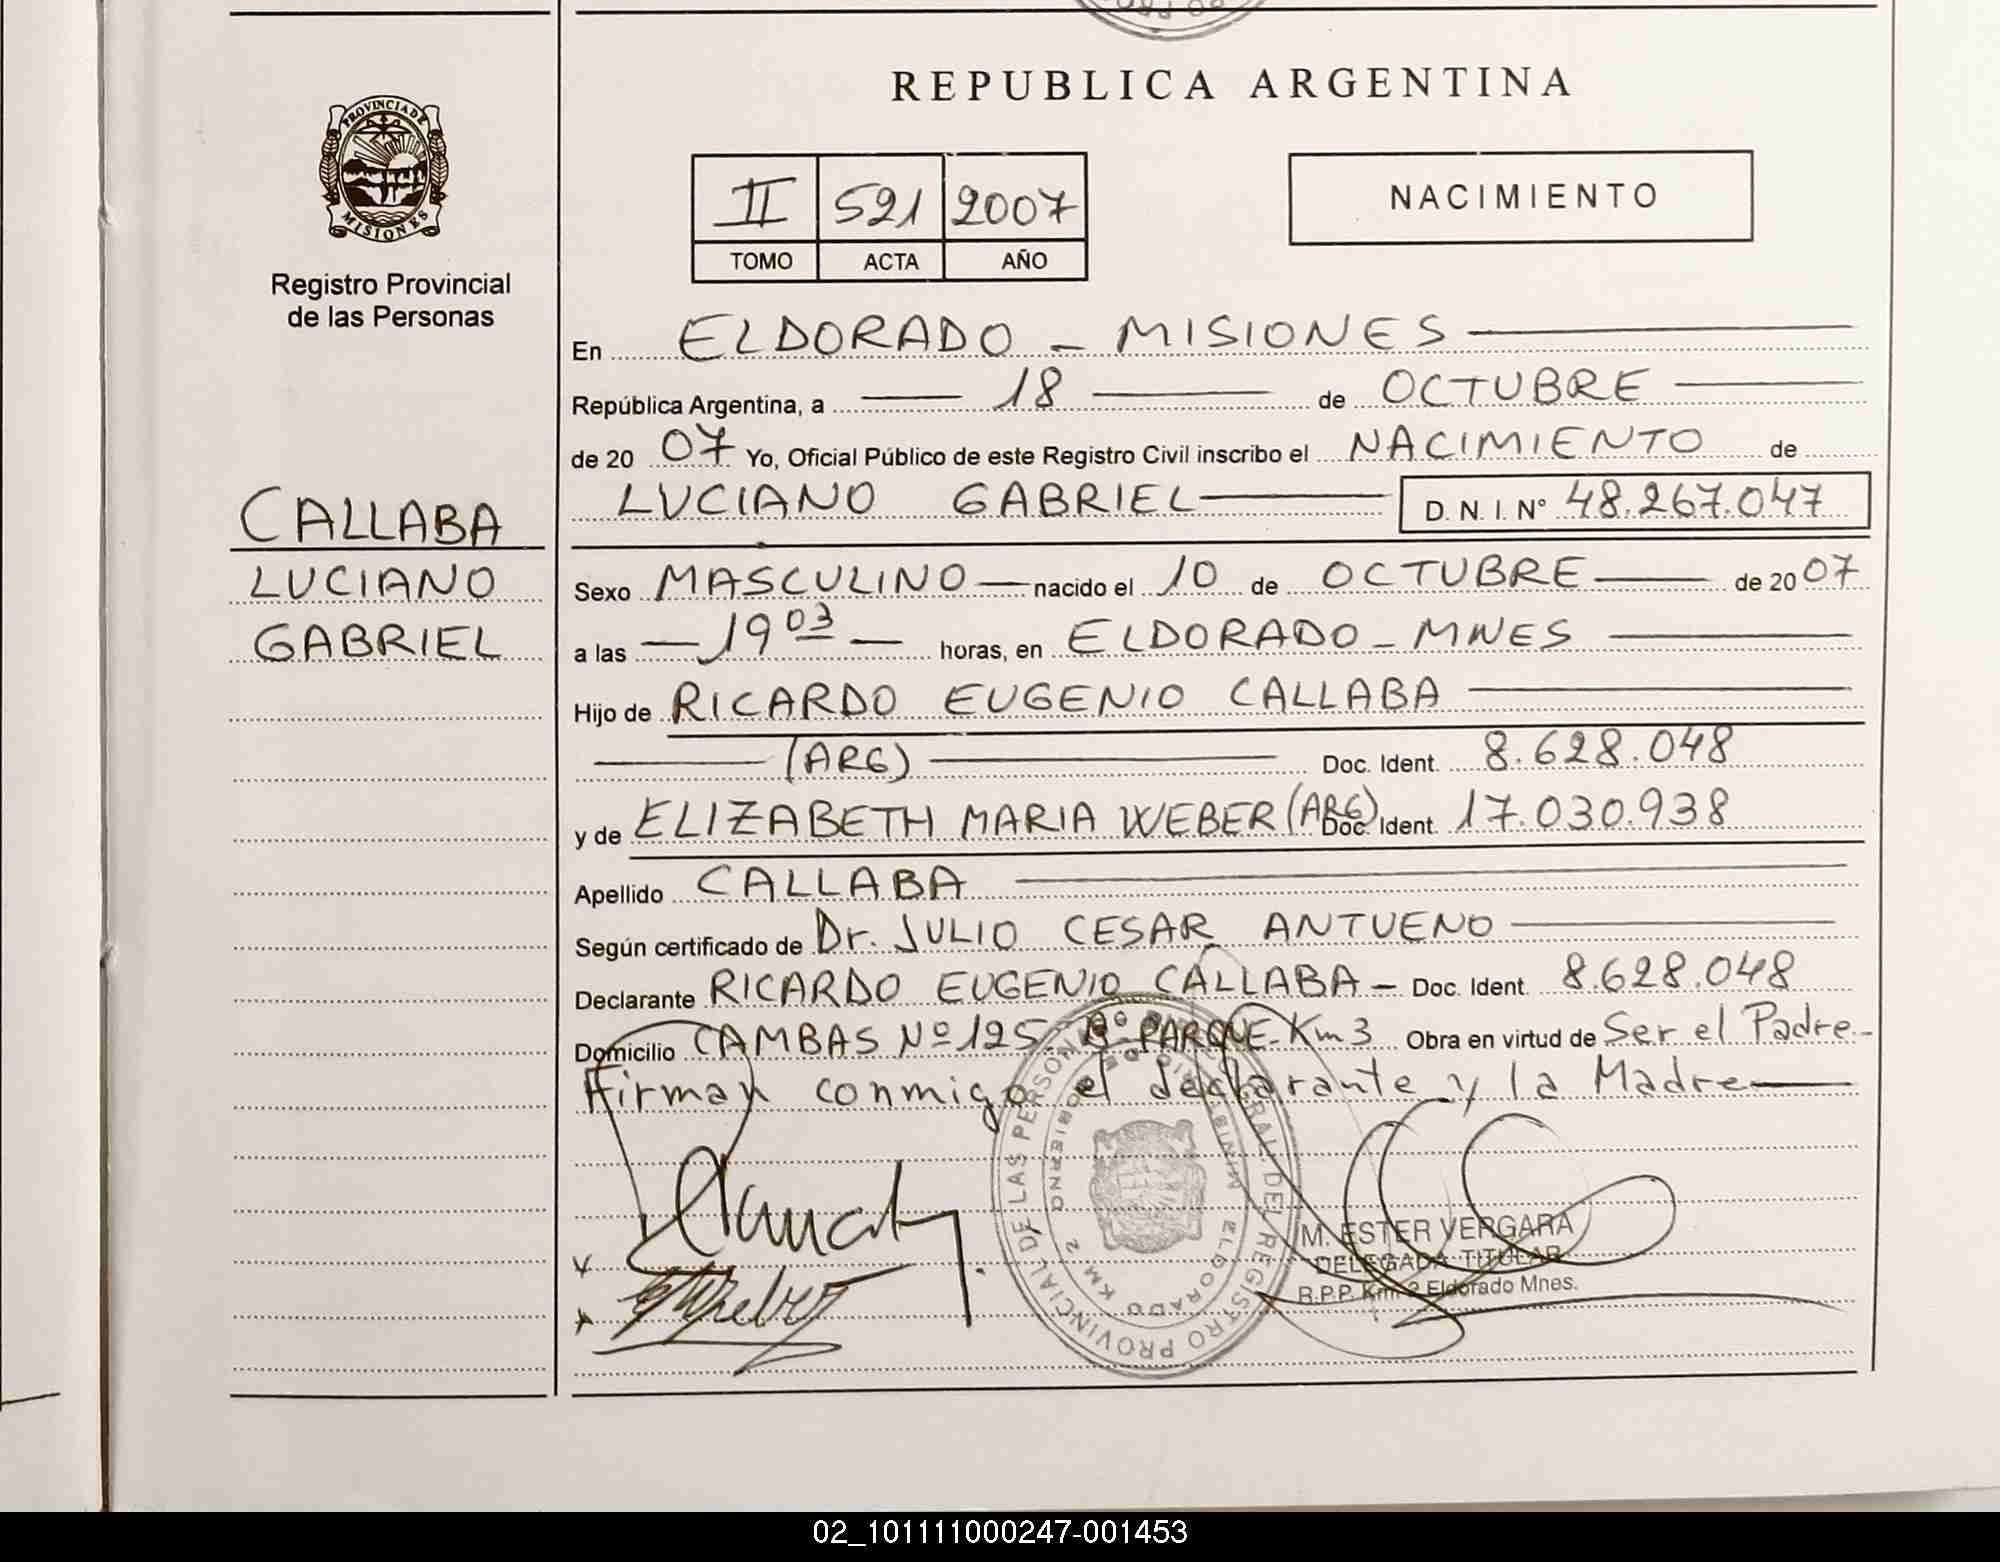 REPUBLICA ARGENTINA
PROVINCIA DE
MISIONES
Registro Provincial
de las Personas
II 521 2007
TOMO ACTA AÑO
NACIMIENTO
CALLABA
LUCIANO
GABRIEL
En ELDORADO - MISIONES
República Argentina, a 18 de OCTUBRE
de 20 07 Yo, Oficial Público de este Registro Civil inscribo el NACIMIENTO de
LUCIANO GABRIEL D. N. I. Nº 48.267.047
Sexo MASCULINO nacido el 10 de OCTUBRE de 20 07
a las 19 03 horas, en ELDORADO - MNES
Hijo de RICARDO EUGENIO CALLABA
(ARG) Doc. Ident. 8.628.048
y de ELIZABETH MARIA WEBER (ARG) Doc. Ident. 17.030.938
Apellido CALLABA
Según certificado de Dr. JULIO CESAR ANTUENO
Declarante RICARDO EUGENIO CALLABA - Doc. Ident. 8.628.048
Domicilio CAMBAS Nº 125 Bº PARQUE - Km 3 Obra en virtud de Ser el Padre -
Firman conmigo el declarante y la Madre
M. ESTER VERGARA
DELEGADA TITULAR
R.P.P. Km 2 Eldorado Mnes.
ELDORADO KM 2
02_101111000247-001453